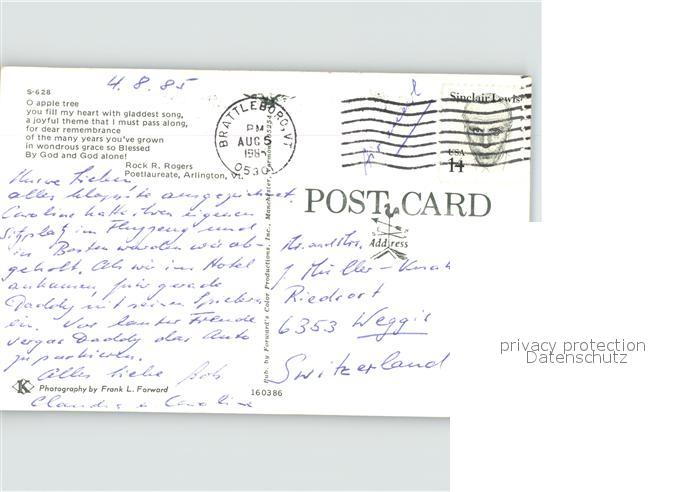 4.8.85
S-628
O apple tree
you fill my heart with gladdest song,
a joyful theme that I must pass along,
for dear remembrance
of the many years you've grown
in wondrous grace so Blessed
By God and God alone!
Rock R. Rogers
Poetlaureate, Arlington, Vt.
Lieben
alles klappte ausgezeichnet.
Caroline hatte ihren eigenen
Sitzplatz im Flugzeug und
in Boston wurden wir ab-
geholt. Als wir im Hotel
ankamen, fuhr gerade
Daddy mit seinen
ein. Vor lauter Freude
vergas Daddy das Auto
zu parkieren.
Alles liebe
Claudia & Caroline
K Photography by Frank L. Forward
160386
Pub. by Forward's Color Productions, Inc., Manchester, Vermont 05254
BRATTLEBORO, VT
PM
AUG 5
1985
0530
Sinclair Lewis
USA
14
POST CARD
Address
Mr. and Mrs.
J Müller-
Riedsort
6353 Weggis
Switzerland
privacy protection
Datenschutz